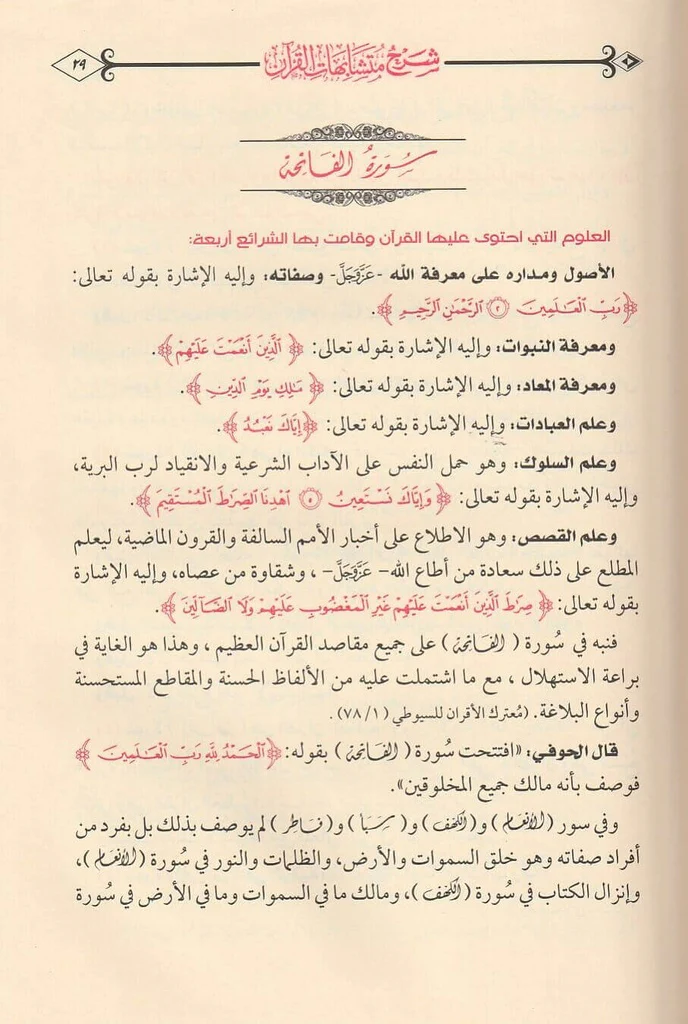 شرح متشابهات القرآن
٢٩
سُورَةُ الفَاتِحَة
العلوم التي احتوى عليها القرآن وقامت بها الشرائع أربعة:
الأصول ومداره على معرفة الله -عَزَّوَجَلَّ- وصفاته: وإليه الإشارة بقوله تعالى:
﴿رَبِّ الْعَالَمِينَ ۝٢ الرَّحْمَنِ الرَّحِيمِ﴾.
ومعرفة النبوات: وإليه الإشارة بقوله تعالى: ﴿الَّذِينَ أَنْعَمْتَ عَلَيْهِمْ﴾.
ومعرفة المعاد: وإليه الإشارة بقوله تعالى: ﴿مَالِكِ يَوْمِ الدِّينِ﴾.
وعلم العبادات: وإليه الإشارة بقوله تعالى: ﴿إِيَّاكَ نَعْبُدُ﴾.
وعلم السلوك: وهو حمل النفس على الآداب الشرعية والانقياد لرب البرية،
وإليه الإشارة بقوله تعالى: ﴿وَإِيَّاكَ نَسْتَعِينُ ۝٥ اهْدِنَا الصِّرَاطَ الْمُسْتَقِيمَ﴾.
وعلم القصص: وهو الاطلاع على أخبار الأمم السالفة والقرون الماضية، ليعلم
المطلع على ذلك سعادة من أطاع الله- عَزَّوَجَلَّ- ، وشقاوة من عصاه، وإليه الإشارة
بقوله تعالى: ﴿صِرَاطَ الَّذِينَ أَنْعَمْتَ عَلَيْهِمْ غَيْرِ الْمَغْضُوبِ عَلَيْهِمْ وَلَا الضَّالِّينَ﴾
فنبه في سُورة (الفَاتِحَة) على جميع مقاصد القرآن العظيم ، وهذا هو الغاية في
براعة الاستهلال ، مع ما اشتملت عليه من الألفاظ الحسنة والمقاطع المستحسنة
وأنواع البلاغة. (مُعترك الأقران للسيوطي (١/ ٧٨) .
قال الحوفي: «افتتحت سُورة (الفَاتِحَة) بقوله: ﴿الْحَمْدُ لِلَّهِ رَبِّ الْعَالَمِينَ﴾
فوصف بأنه مالك جميع المخلوقين».
وفي سور (الأنعَام) و(الكَهف) و(سَبَأ) و(فَاطِر) لم يوصف بذلك بل بفرد من
أفراد صفاته وهو خلق السموات والأرض، والظلمات والنور في سُورة (الأنعَام)،
وإنزال الكتاب في سُورة (الكَهف)، ومالك ما في السموات وما في الأرض في سُورة